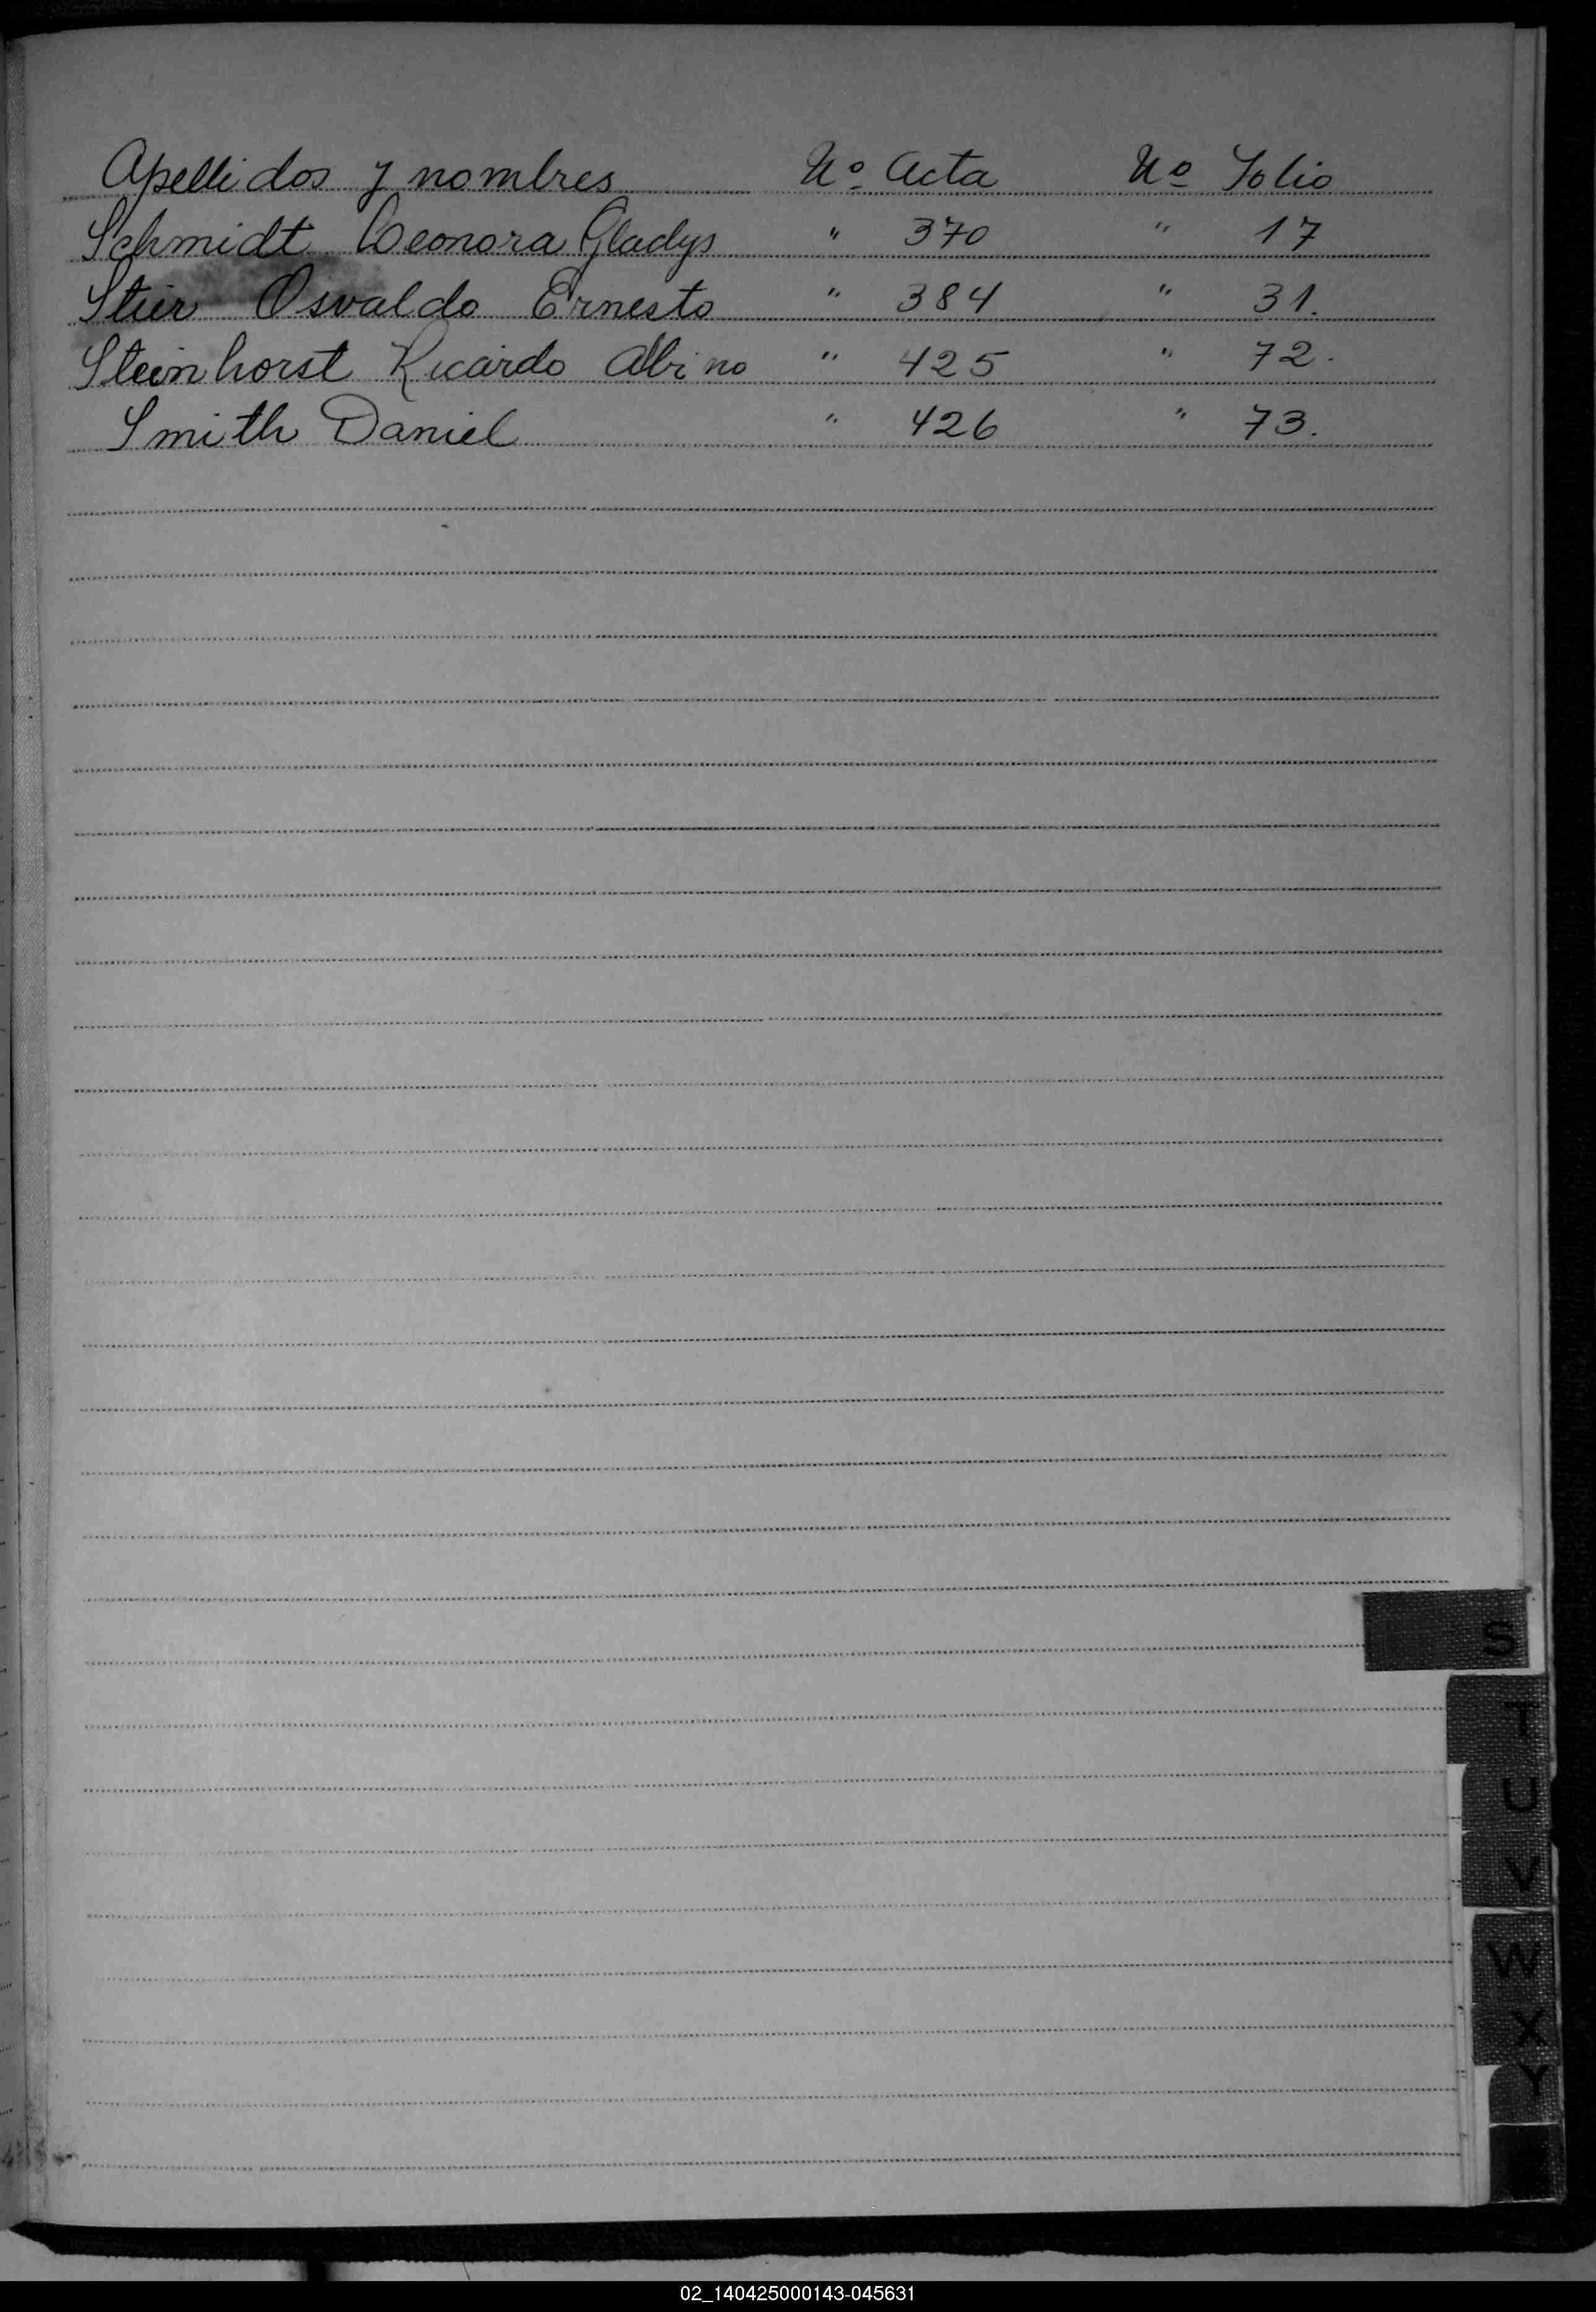 Apellidos y nombres Nº Acta Nº Folio
Schmidt Leonora Gladys " 370 " 17
Stier Osvaldo Ernesto " 384 " 31.
Steinhorst Ricardo Albino " 425 " 72.
Smith Daniel " 426 " 73.
S
T
U
V
W
X
Y
02_140425000143-045631